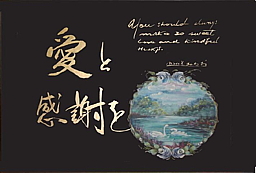 愛と
感謝を
you should always
make so sweet
love and kindful